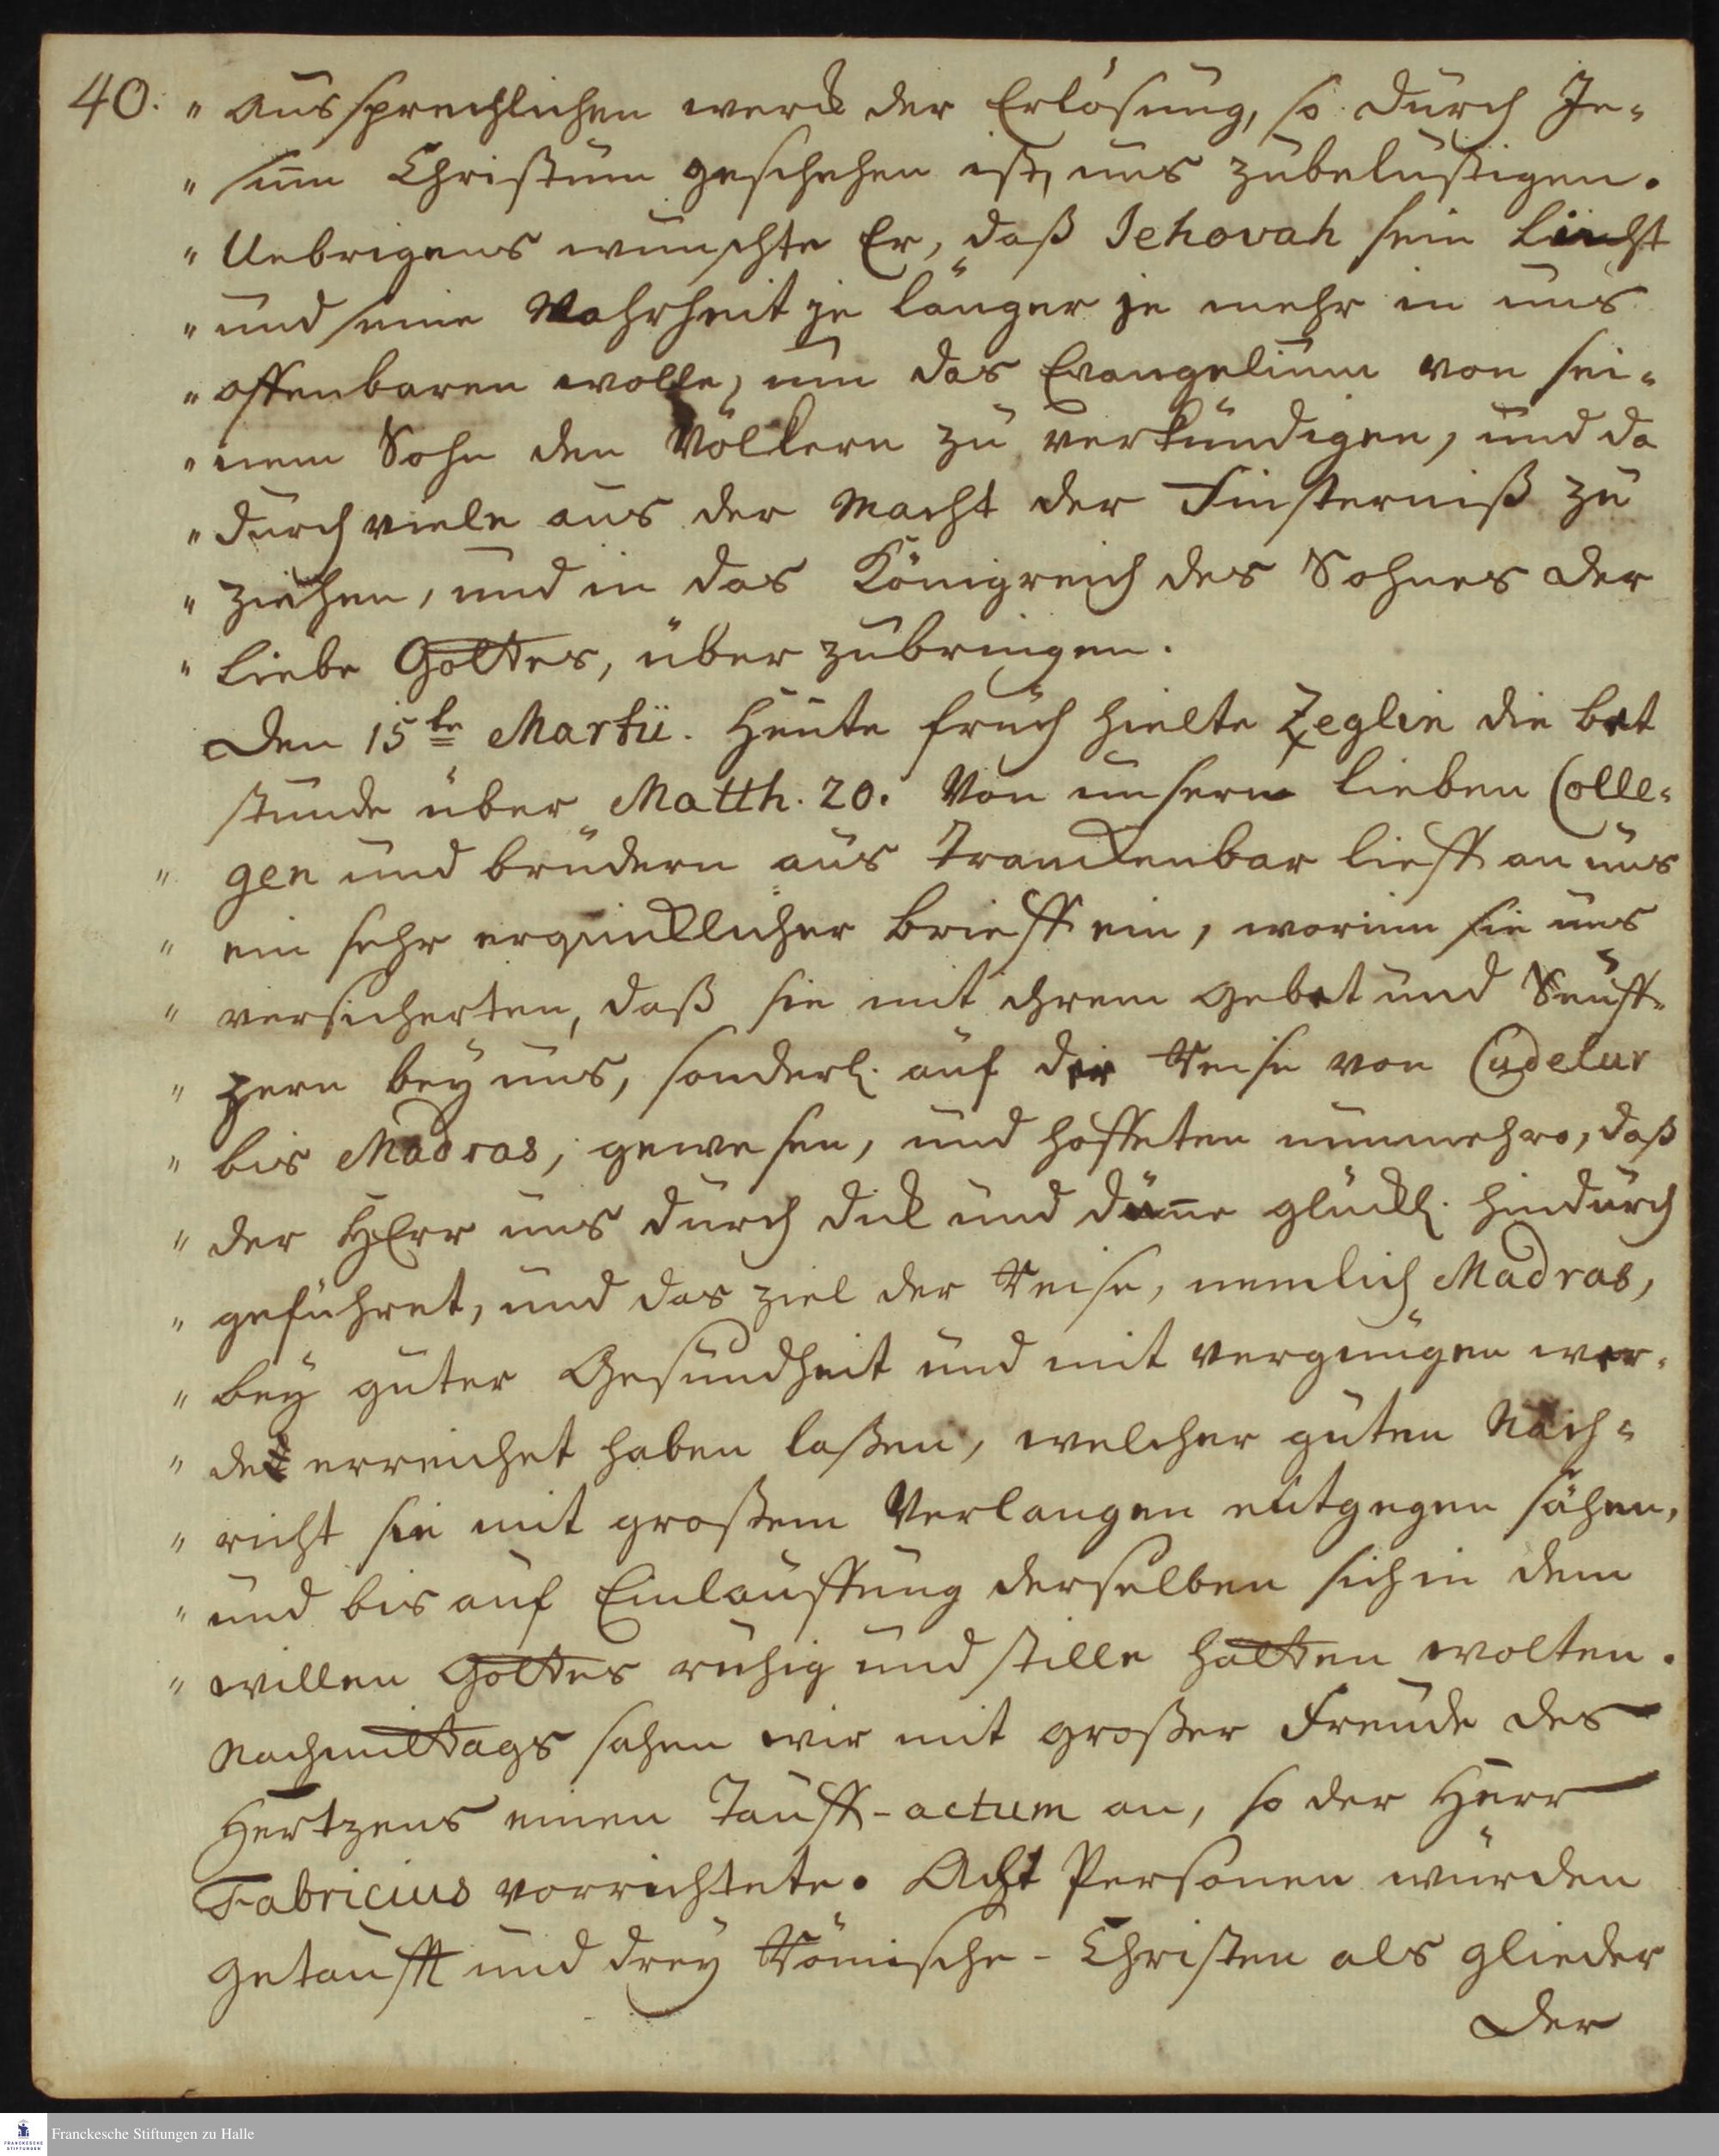 40. „ aussprechlichen werck der Erlösung, so durch Je-
„ sum Christum geschehen ist, uns zubelustigen.
„ Uebrigens wünschte Er, daß Jehovah sein Licht
„ und seine Wahrheit je länger je mehr in uns
„ offenbaren wolle, um das Evangelium von sei-
„ nem Sohn den Völckern zu verkündigen, und da
„ durch viele aus der Macht der Finsterniß zu
„ ziehen, und in das Königreich des Sohnes der
„ Liebe Gottes, über zubringen.
Den 15te Martii. Heute früh hielte Zeglin die bet
stunde über Matth. 20. Von unsern lieben Colle-
„ gen und brüdern aus Tranckenbar lieff an uns
„ ein sehr erquicklicher brieff ein, worinn sie uns
„ versicherten, daß sie mit ihrem gebet und Seuff-
„ zern bey uns, sonderl. auf der Reise von Cudelur
„ bis Madras, gewesen, und hoffeten nunmehro, daß
„ der HErr uns durch dick und dünne glückl. hindurch
„ geführet, und das ziel der Reise, nemlich Madras,
„ bey guter Gesundheit und mit vergnügen wer-
„ de erreichet haben laßen, welcher guten Nach-
„ richt sie mit großem Verlangen entgegen sähen,
„ und bis auf Einlauffung derselben sich in dem
„ willen Gottes ruhig und stille halten wolten.
Nachmittags sahen wir mit großer Freude des
Hertzens einen Tauff-actum an, so der Herr
Fabricius verrichtete. Acht Personen wurden
getaufft und drey Römische-Christen als glieder
der
Franckesche Stiftungen zu Halle